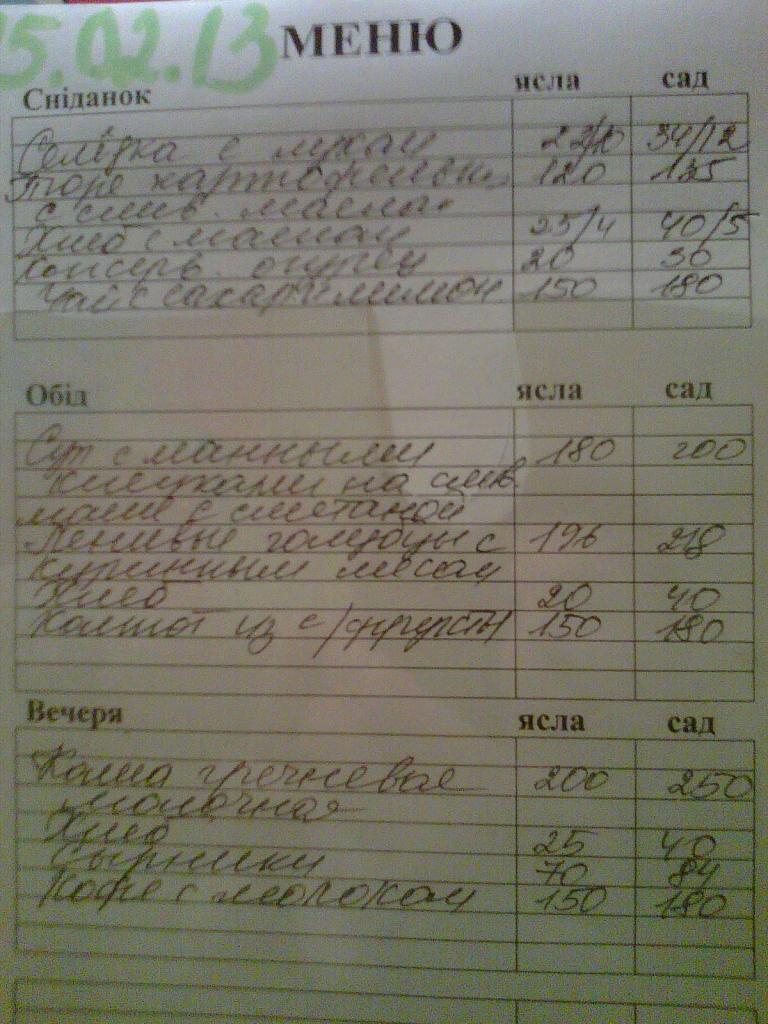 5.02.13 МЕНЮ
Сніданок ясла сад
Селідка с луком 22/10 34/12
Пюре картофельн. 120 135
с слив. маслом
Хлеб с маслом 25/4 40/5
Консерв. огурец 20 30
Чай с сахар и лимон. 150 180
Обід ясла сад
Суп с манными 180 200
клецками на слив.
масле с сметаной
Ленивые голубцы с 196 218
куринным мясом
Хлеб 20 40
Компот из с/фрукты 150 180
Вечеря ясла сад
Каша гречневая 200 250
молочная
Хлеб 25 40
Сырники 70 84
Кофе с молоком 150 180